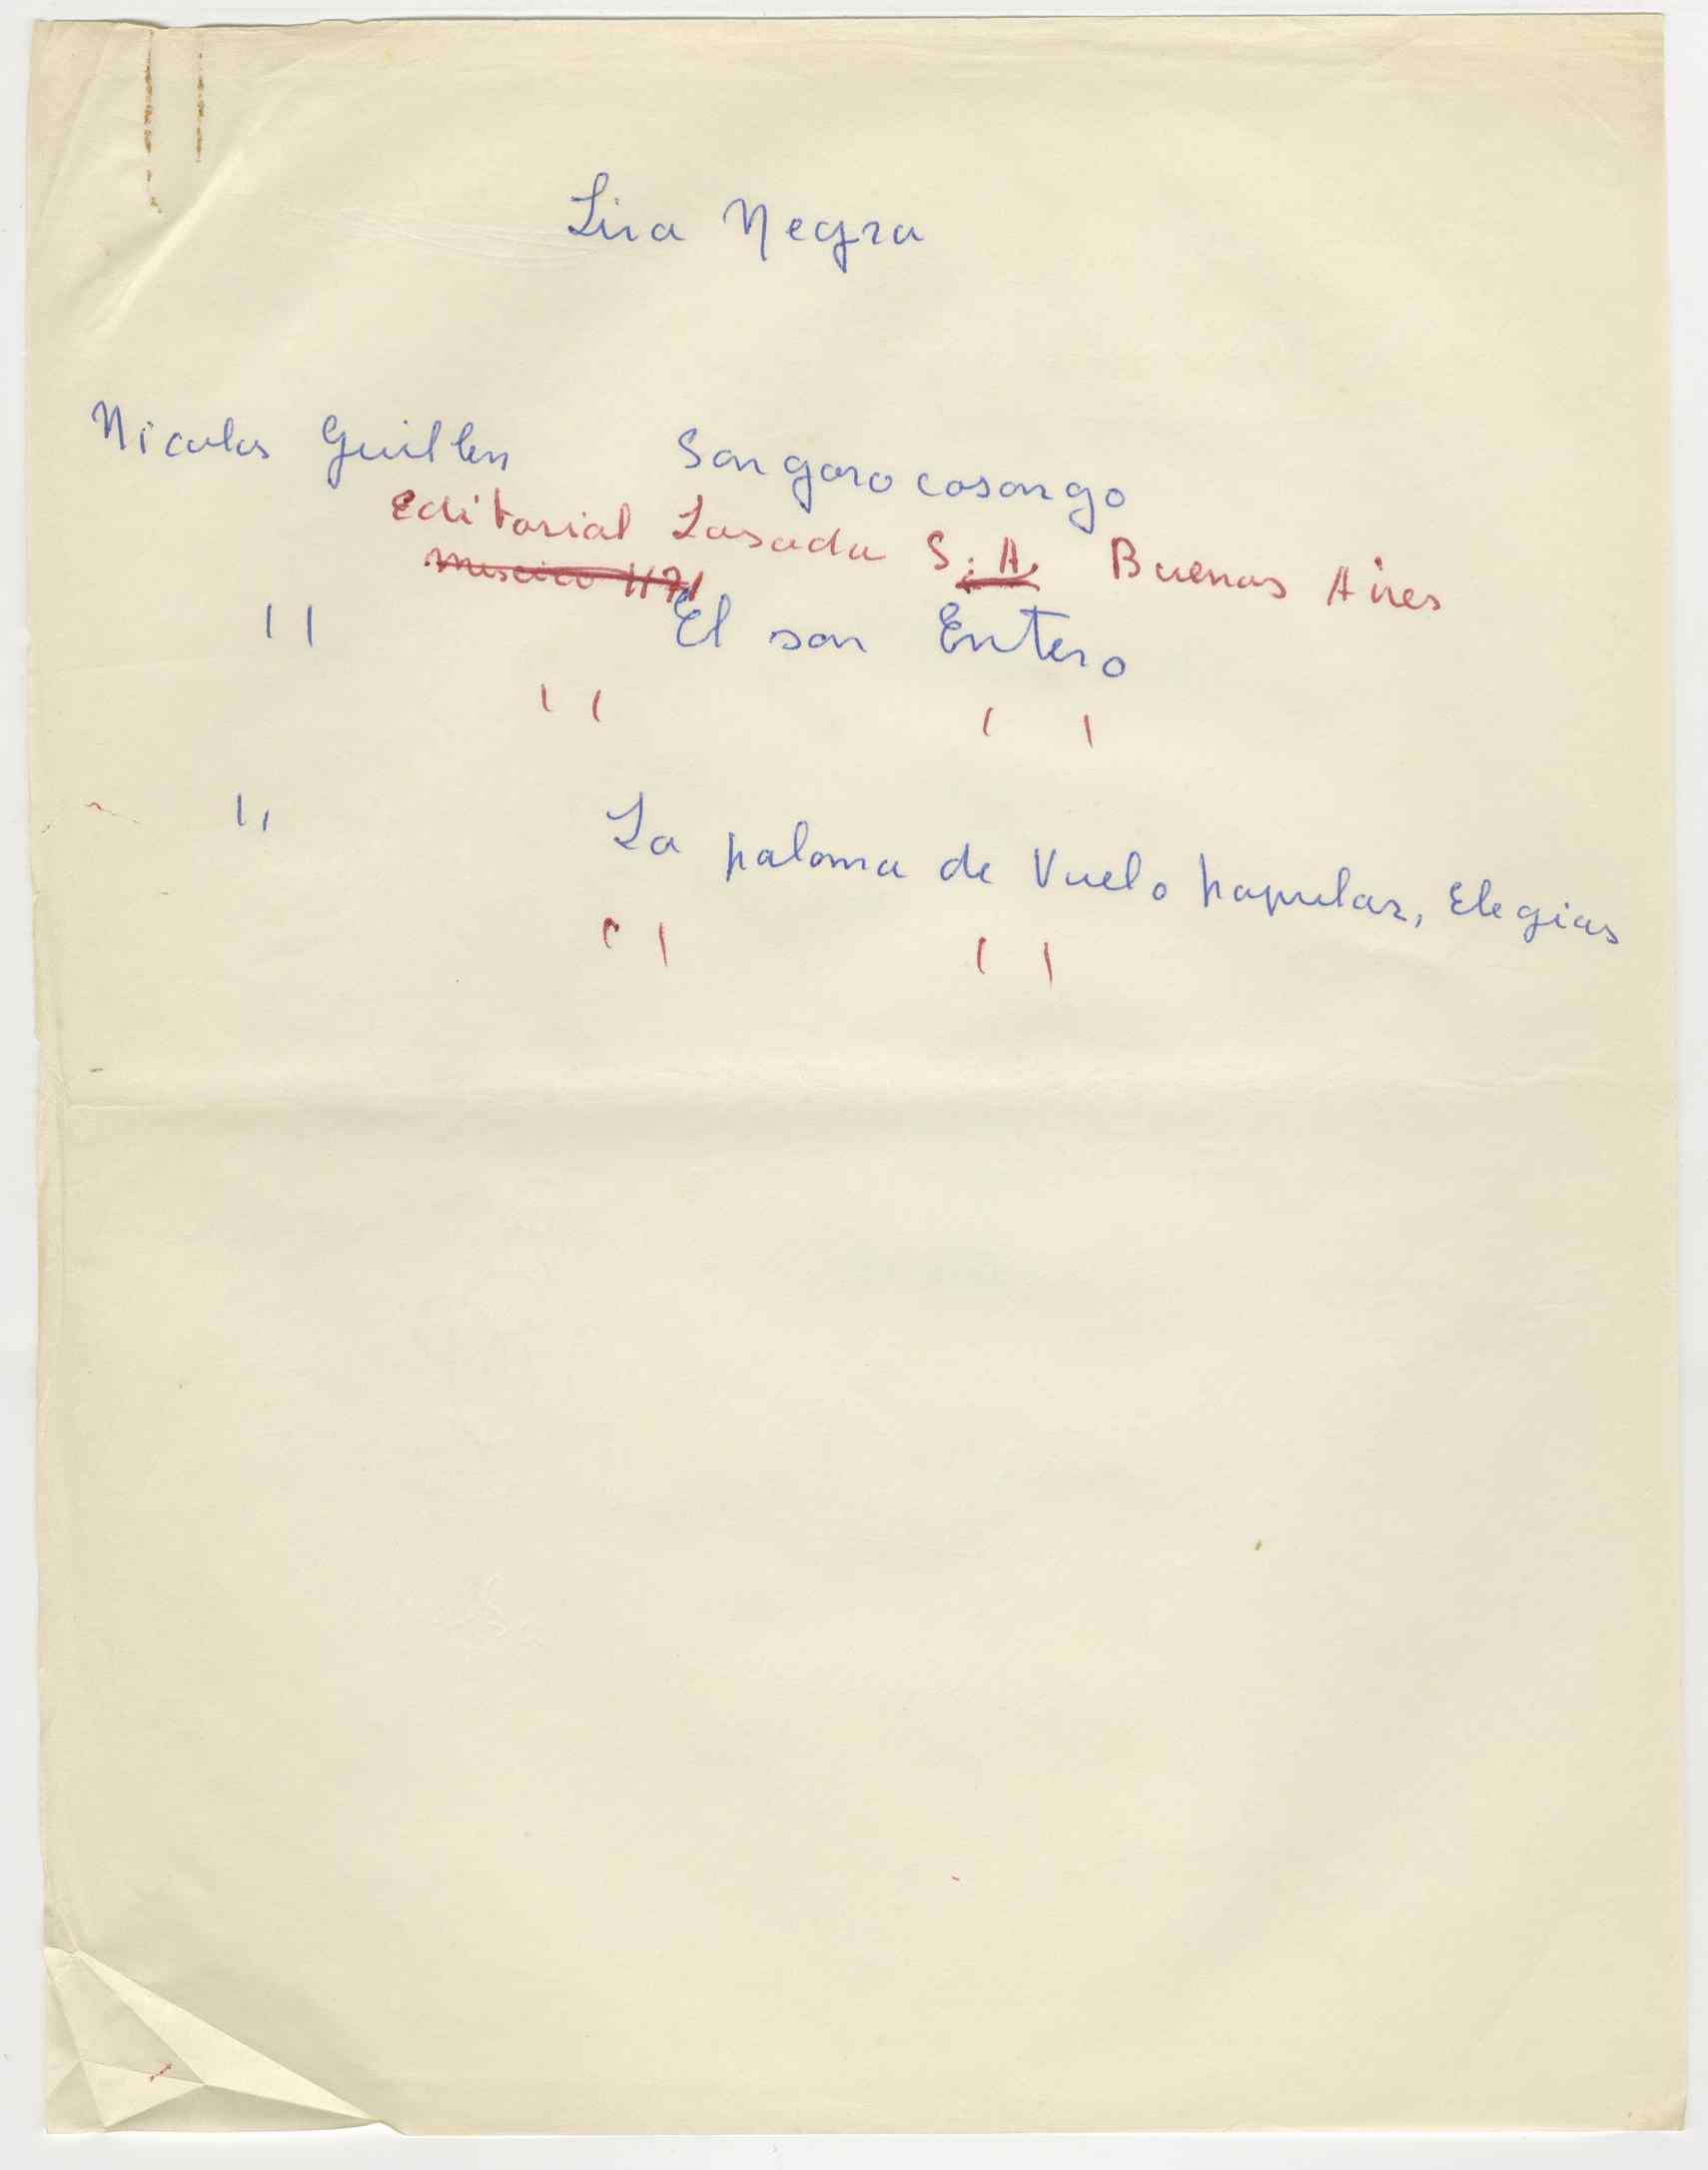 Lira Negra
Nicolas Guillen Songoro cosongo
Editorial Losada S. A. Buenos Aires
" El son Entero
" "
" La paloma de Vuelo popular, Elegias
" "